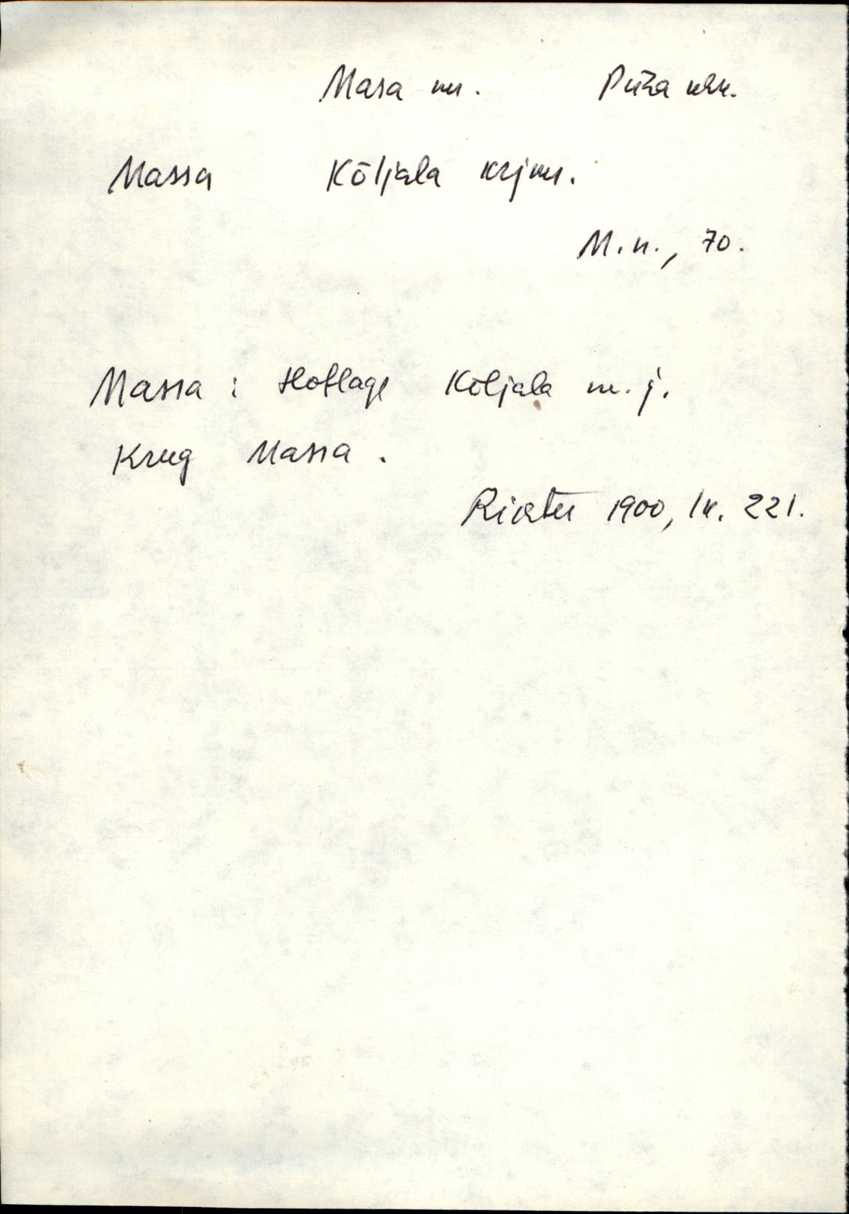 Masa m. Püha khk.
Massa Kõljala krjm.
M.n., 70.
Massa : Hoflage Kõljala m. j.
Krug Massa .
Richter 1900, lk. 221.